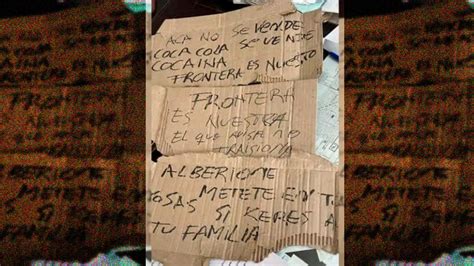 ACA NO SE VENDE
COCA COLA SE VENDE
COCAINA
FRONTERA ES NUESTRO
FRONTERA
ES NUESTRA
EL QUE AVISA NO
TRAISIONA
ALBERIONE
METETE EN T
COSAS SI KERES A
TU FAMILIA